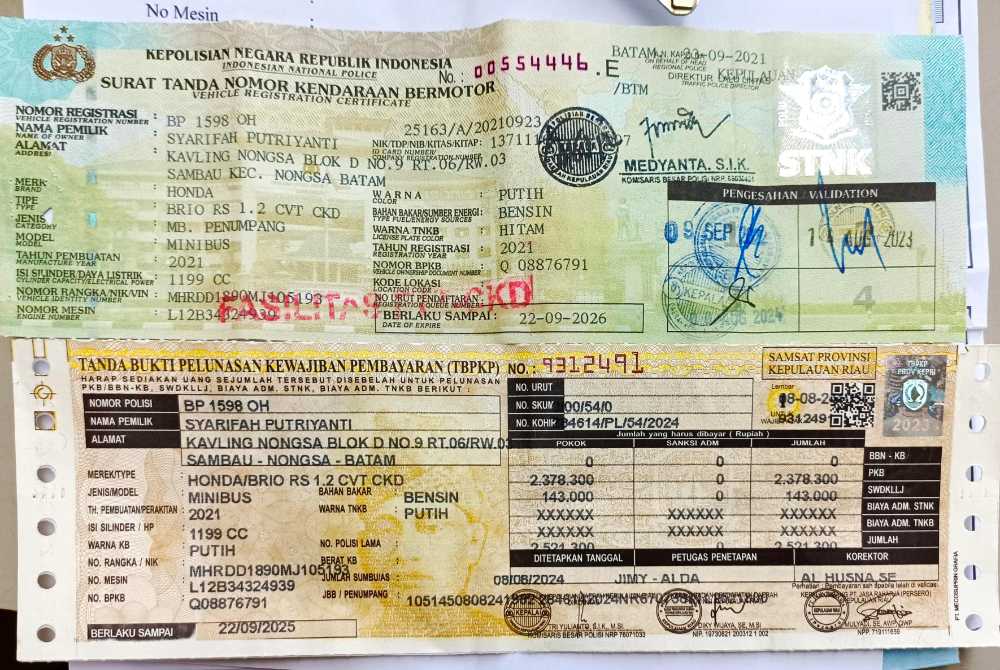 No Mesin
KEPOLISIAN NEGARA REPUBLIK INDONESIA
INDONESIAN NATIONAL POLICE
No.: 00554446 .E
SURAT TANDA NOMOR KENDARAAN BERMOTOR
VEHICLE REGISTRATION CERTIFICATE
BATAM, 23-09-2021
A.N. KAPOLDA
ON BEHALF OF HEAD
REGIONAL POLICE
KEPULAUAN
DIREKTUR LALU LINTAS
TRAFFIC POLICE DIRECTOR
/BTM
MEDYANTA. S.I.K.
KOMISARIS BESAR POLISI NRP
STNK
NOMOR REGISTRASI : BP 1598 OH
VEHICLE REGISTRATION NUMBER
25163/A/20210923
NAMA PEMILIK : SYARIFAH PUTRIYANTI
NAME OF OWNER
NIK/TDP/NIB/KITAS/KITAP :
ID CARD NUMBER/
COMPANY REGISTRATION NUMBER
ALAMAT : KAVLING NONGSA BLOK D NO.9 RT.06/RW.03
ADDRESS
SAMBAU KEC. NONGSA BATAM
MERK : HONDA
BRAND
TIPE : BRIO RS 1.2 CVT CKD
TYPE
JENIS : MB. PENUMPANG
CATEGORY
MODEL : MINIBUS
MODEL
TAHUN PEMBUATAN : 2021
MANUFACTURE YEAR
ISI SILINDER/DAYA LISTRIK : 1199 CC
CYLINDER CAPACITY/ELECTRICAL POWER
NOMOR RANGKA/NIK/VIN : MHRDD1890MJ105193
VEHICLE IDENTITY NUMBER
NOMOR MESIN : L12B34324939
ENGINE NUMBER
WARNA : PUTIH
COLOR
BAHAN BAKAR/SUMBER ENERGI : BENSIN
TYPE FUEL/ENERGY SOURCES
WARNA TNKB : HITAM
LICENSE PLATE COLOR
TAHUN REGISTRASI : 2021
REGISTRATION YEAR
NOMOR BPKB : Q 08876791
VEHICLE OWNERSHIP DOCUMENT NUMBER
KODE LOKASI :
LOCATION CODE
NO URUT PENDAFTARAN :
REGISTRATION QUEUE NUMBER
BERLAKU SAMPAI : 22-09-2026
DATE OF EXPIRE
PENGESAHAN / VALIDATION
09 SEP
AUG 2023
AUG 2024
KEPALA
4
TANDA BUKTI PELUNASAN KEWAJIBAN PEMBAYARAN (TBPKP) NO.: 9312491
SAMSAT PROVINSI
KEPULAUAN RIAU
HARAP SEDIAKAN UANG SEJUMLAH TERSEBUT DISEBELAH UNTUK PELUNASAN
PKB/BBN-KB, SWDKLLJ, BIAYA ADM. STNK, BIAYA ADM. TNKB BERIKUT :
TBPKP
PROV KEPRI
2023
NOMOR POLISI BP 1598 OH
NAMA PEMILIK SYARIFAH PUTRIYANTI
ALAMAT KAVLING NONGSA BLOK D NO.9 RT.06/RW.03
SAMBAU - NONGSA - BATAM
MEREK/TYPE : HONDA/BRIO RS 1.2 CVT CKD
JENIS/MODEL : MINIBUS
BAHAN BAKAR : BENSIN
TH. PEMBUATAN/PERAKITAN : 2021
WARNA TNKB : PUTIH
ISI SILINDER / HP : 1199 CC
WARNA KB : PUTIH
NO. POLISI LAMA :
NO. RANGKA / NIK : MHRDD1890MJ105193
BERAT KB :
NO. MESIN : L12B34324939
JUMLAH SUMBU/AS :
NO. BPKB : Q08876791
JBB / PENUMPANG :
BERLAKU SAMPAI 22/09/2025
NO. URUT
NO. SKUM 00/54/0
NO. KOHIR 34614/PL/54/2024
Lembar
1
Jumlah yang harus dibayar ( Rupiah )
POKOK SANKSI ADM JUMLAH
0 0 0 BBN - KB
2.378.300 0 2.378.300 PKB
143.000 0 143.000 SWDKLLJ
XXXXXX XXXXXX XXXXXX BIAYA ADM. STNK
XXXXXX XXXXXX XXXXXX BIAYA ADM. TNKB
2.521.300 0 2.521.300 JUMLAH
DITETAPKAN TANGGAL PETUGAS PENETAPAN KOREKTOR
08/08/2024 JIMY - ALDA AL HUSNA,SE
PT. JASA RAHARJA (PERSERO)
KEPULAUAN RIAU
KOMISARIS BESAR POLISI NRP 76071033
NIP. 19730821 200312 1 002
NPP. 719111639